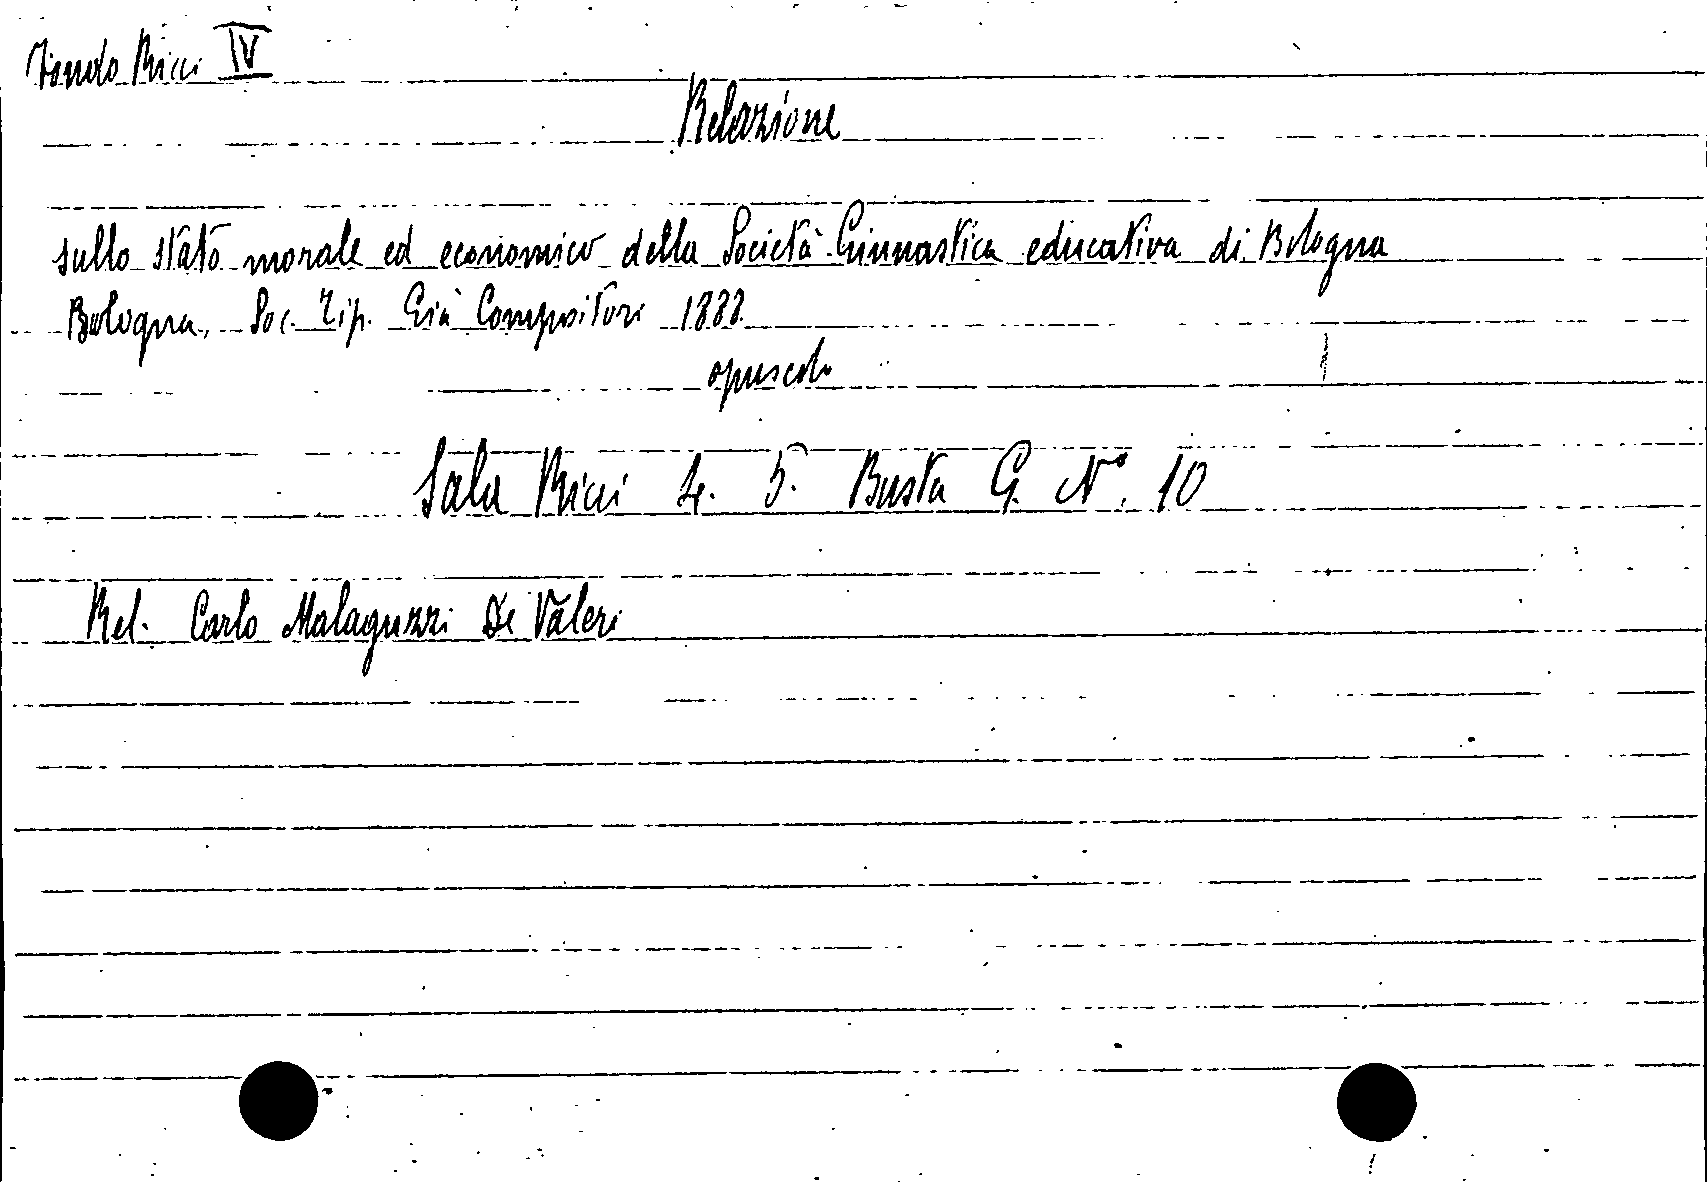 Fondo Ricci IV
Relazione
sullo stato morale ed economico della Società Ginnastica educativa di Bologna
Bologna, Soc. Tip. Già Compositori 1888
opuscolo
Sala Ricci 4. 5. Busta G. N° 10
Rel. Carlo Malaguzzi De Valeri